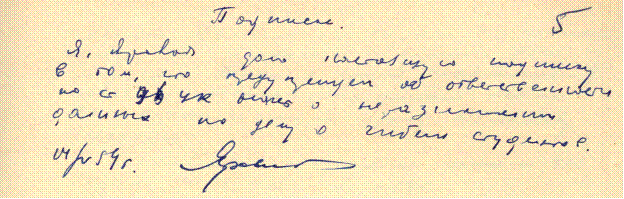 Подписка. 5
Я, Яровой даю настоящую подписку
в том, что предупрежден об ответственности
по ст 96 УК о неразглашении
данных по делу о гибели студентов.